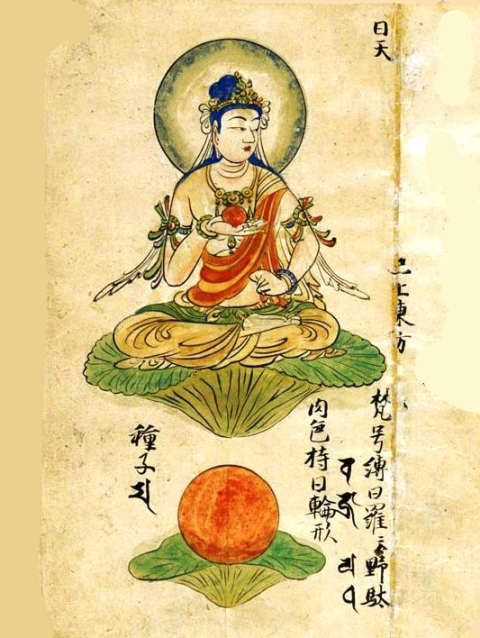 日天
已上東方
梵号縛日羅野駄
肉色持日輪形
種子